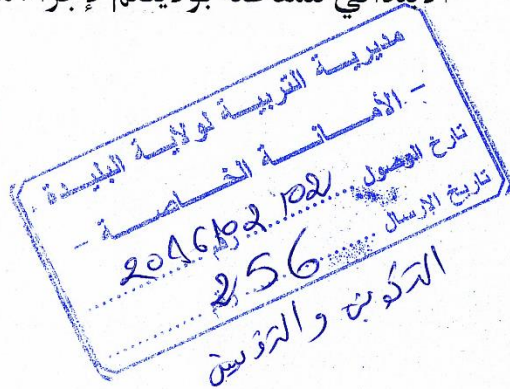 الابتدائي
مديرية التربية لولاية البليدة
- الأمانة الخاصة -
تارخ الوصول 2016/02/02 رقم
تاريخ الارسال 256
التكوين و التفتيش